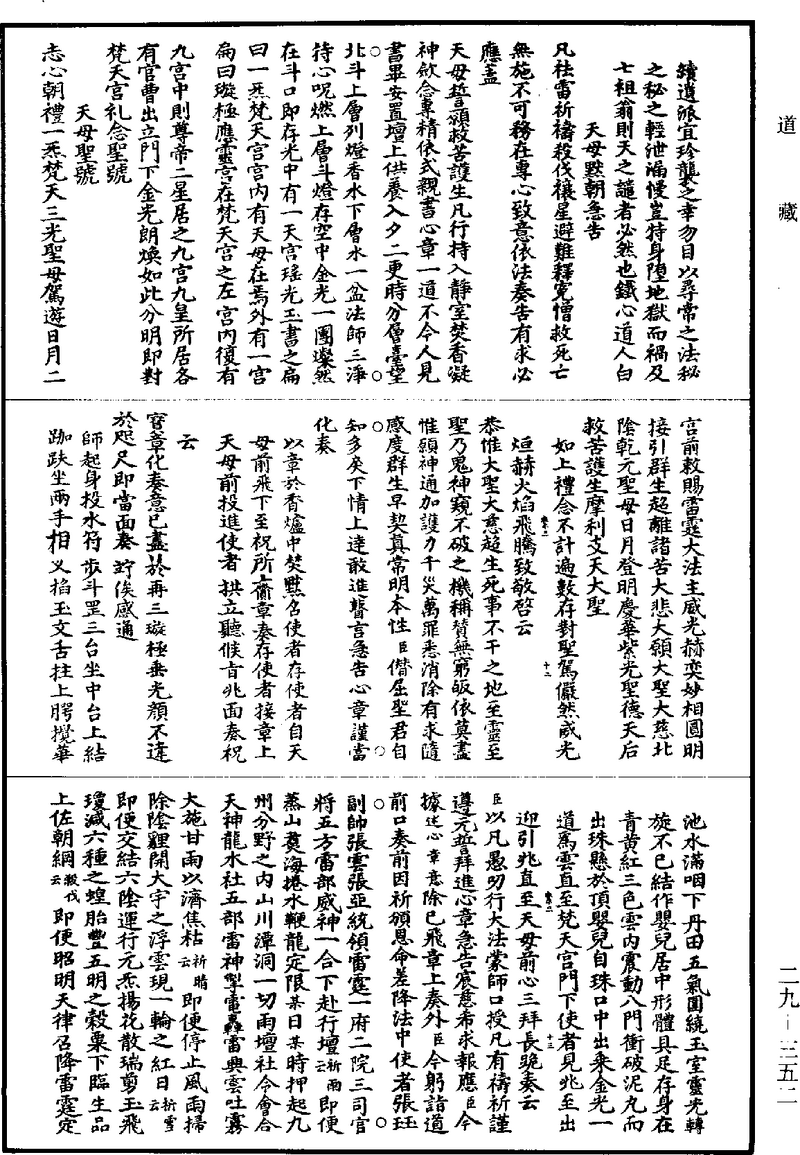 道藏
續遺派宜珍襲之幸勿目以尋常之法秘
之秘之輕泄漏慢豈特身墮地獄而禍及
七祖翁則天之譴者必然也鐵心道人白
天母黙朝急告
凡祛雷祈禱殺伐禳星避難釋寃憎救死亡
無施不可務在專心致意依法奏告有求必
應盖
天母誓願救苦護生凡行持入靜室焚香凝
神歛念專精依式親書心章一道不令人見
書畢安置壇上供養入夕二更時分層臺望
北斗上層列燈香水下層水一盆法師三淨
待心呪燃上層斗燈存空中金光一團燦然
在斗口即存光中有一天宮瑤光玉書之扁
曰一炁梵天宮宮內有天母在焉外有一宮
扁曰璇極應靈宮在梵天宮之左宮內復有
九宮中則尊帝二星居之九宮九皇所居各
有官曹出立門下金光朗煥如此分明即對
梵天宮礼念聖號
天母聖號
志心朝禮一炁梵天三光聖母駕遊日月二
宮前敕賜雷霆大法主威光赫奕妙相圓明
接引群生超離諸苦大悲大願大聖大慈北
陰乾元聖母日月登明慶華紫光聖德天后
救苦護生摩利支天大聖
如上禮念不計遍數存對聖駕儼然威光
烜赫火焰飛騰致敬啓云
恭惟大聖大慈超生死事不干之地至靈至
聖乃鬼神窺不破之機稱賛無窮皈依莫盡
惟願神通加護力千災萬罪悉消除有求隨
感度群生早契真常明本性臣僣屈聖君自
知多矣下情上達敢進瞽言急告心章謹當
化奏
以章於香爐中焚黙名使者存使者自天
母前飛下至祝所齎章奏存使者接章上
天母前投進使者拱立聽候旨兆面奏祝
云
寳章化奏意已盡於再三璇極垂光顔不違
於咫尺即當面奏竚俟感通
師起身投水符步斗罡三台坐中台上結
跏趺坐兩手相乂掐玉文舌拄上腭攪華
池水滿咽下丹田五氣圍繞玉室靈光轉
旋不已結作嬰兒居中形體具足存身在
青黄紅三色雲內震動八門衝破泥丸而
出珠懸於頂嬰兒自珠口中出乘金光一
道馬雲直至梵天宮門下使者見兆至出
迎引兆直至天母前心三拜長跪奏云
臣以凡愚叨行大法蒙師口授凡有禱祈謹
遵元誓拜進心章急告宸意希求報應臣今
據述心章意除已飛章上奏外臣今躬詣道
前口奏前因祈頒恩命差降法中使者張珏
副帥張雲張亞統領雷霆一府二院三司官
將五方雷部威神一合下赴行壇祈雨云即便
蒸山煑海捲水鞭龍定限某日某時押起九
州分野之內山川潭洞一切雨壇社令會合
天神龍水社五部雷神掣電轟雷興雲吐霧
大施甘雨以濟焦枯祈晴云即便停止風雨掃
除陰翳開大宇之浮雲現一輪之紅日祈雪云
即便交結六陰運行元炁揚花散瑞剪玉飛
瓊滅六種之蝗胎豐五明之穀粟下臨生品
上佐朝綱殺伐云即便昭明天律召降雷霆定
二九-三五二